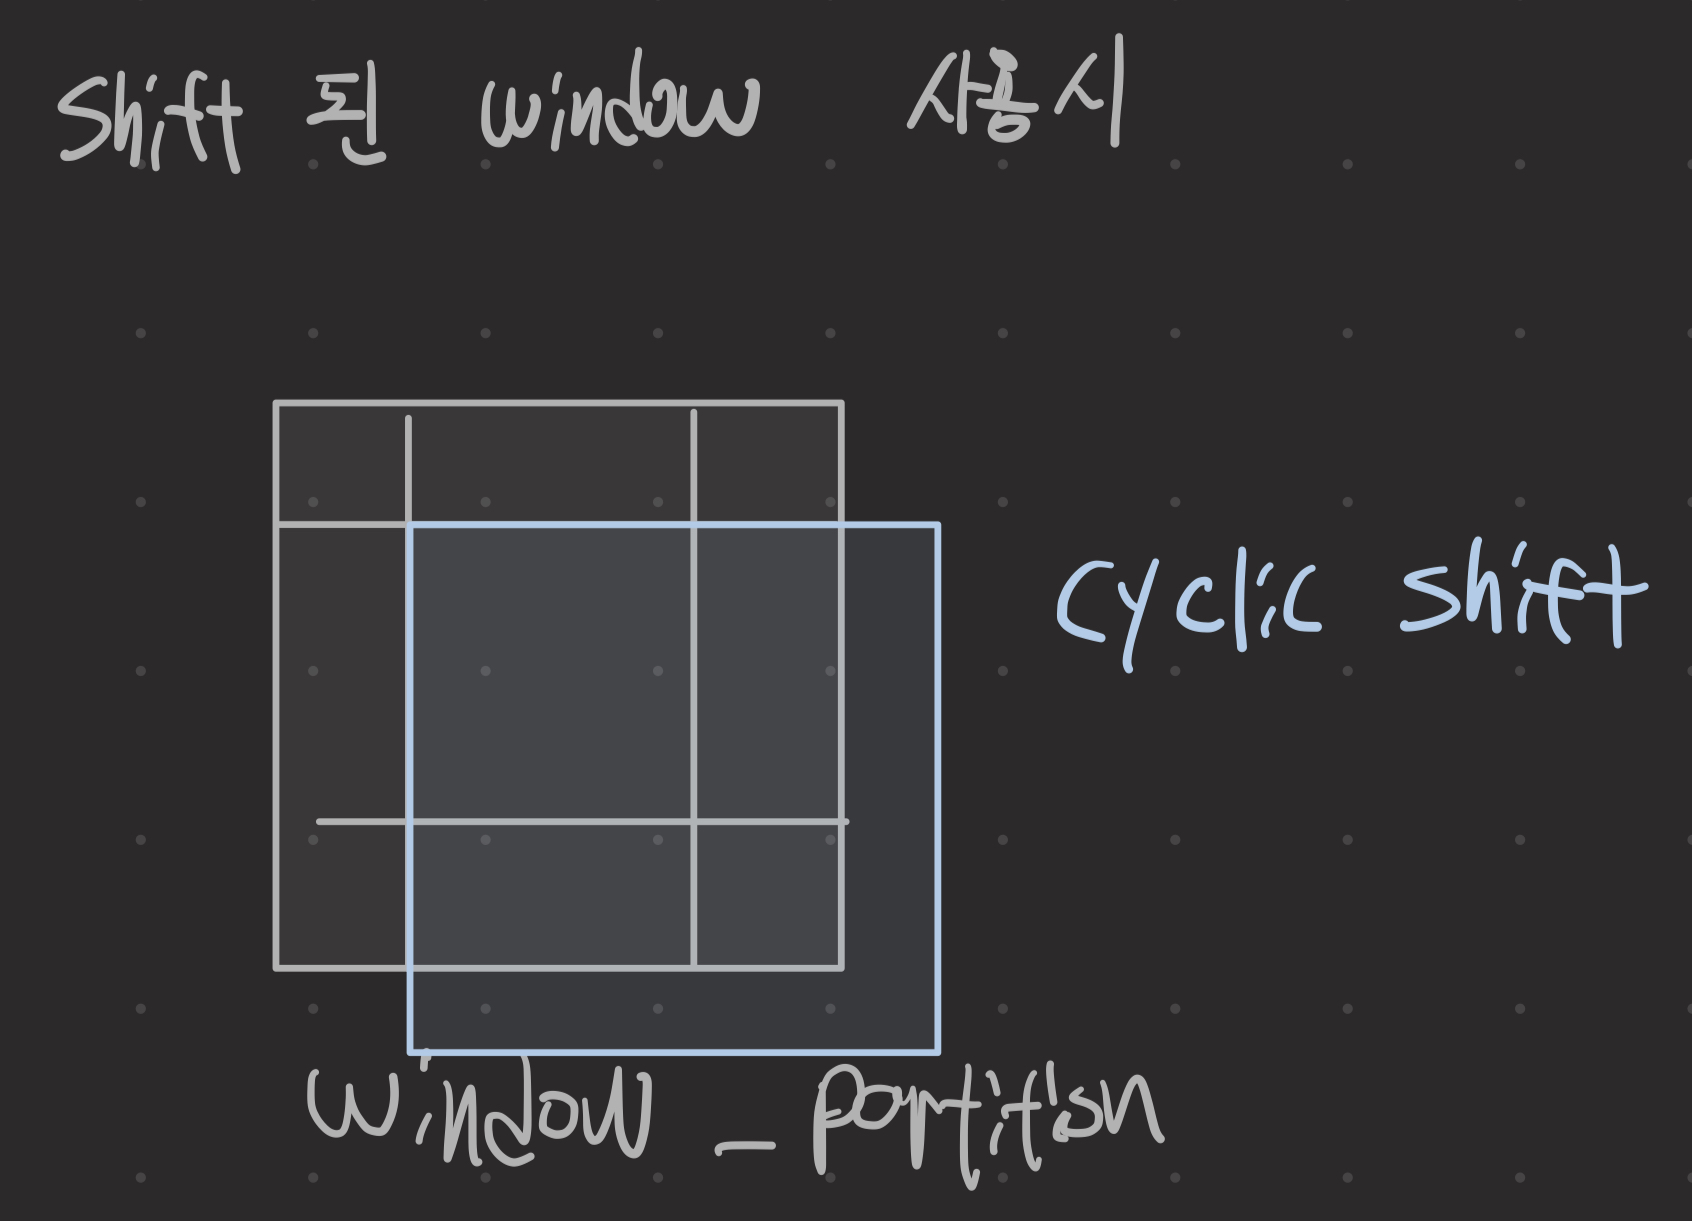 Shift 된 window 사용시
cyclic shift
window _ partition